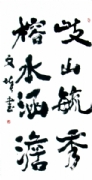 岐山毓秀
榕水涵澹
文书